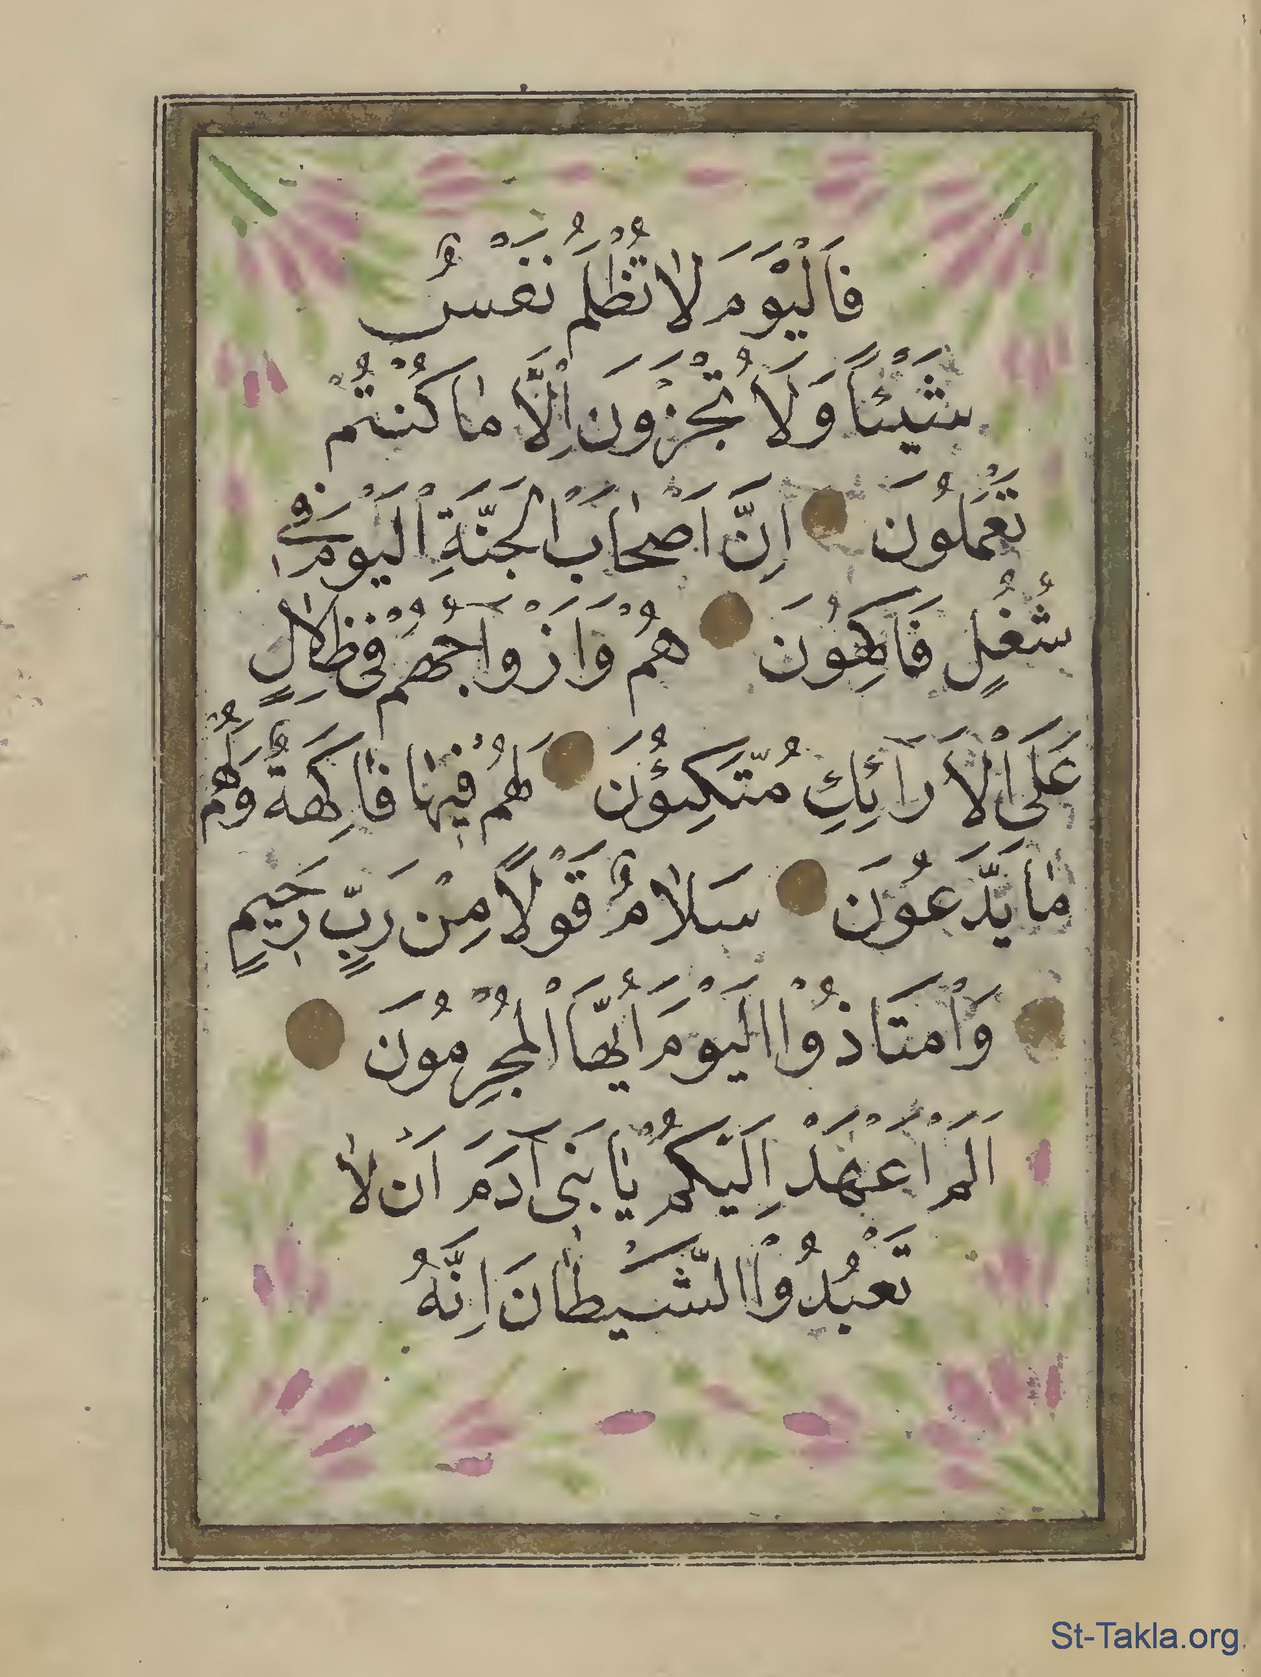 فَالْيَوْمَ لَا تُظْلَمُ نَفْسٌ
شَيْئًا وَلَا تُجْزَوْنَ اِلَّا مَا كُنْتُمْ
تَعْمَلُونَ اِنَّ اَصْحَابَ الْجَنَّةِ الْيَوْمَ فِي
شُغُلٍ فَاكِهُونَ هُمْ وَاَزْوَاجُهُمْ فِي ظِلَالٍ
عَلَى الْاَرَآئِكِ مُتَّكِئُونَ لَهُمْ فِيهَا فَاكِهَةٌ وَلَهُمْ
مَا يَدَّعُونَ سَلَامٌ قَوْلًا مِنْ رَبٍّ رَحِيمٍ
وَامْتَاذُوا الْيَوْمَ أَيُّهَا الْمُجْرِمُونَ
اَلَمْ اَعْهَدْ اِلَيْكُمْ يَا بَنِى آدَمَ اَنْ لَا
تَعْبُدُوا الشَّيْطَانَ اِنَّهُ
St-Takla.org